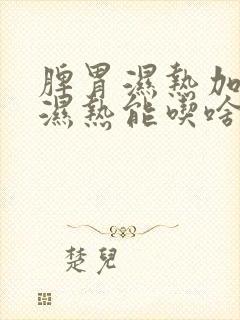 脾胃濕熱加
濕熱能喫啥
楚兒